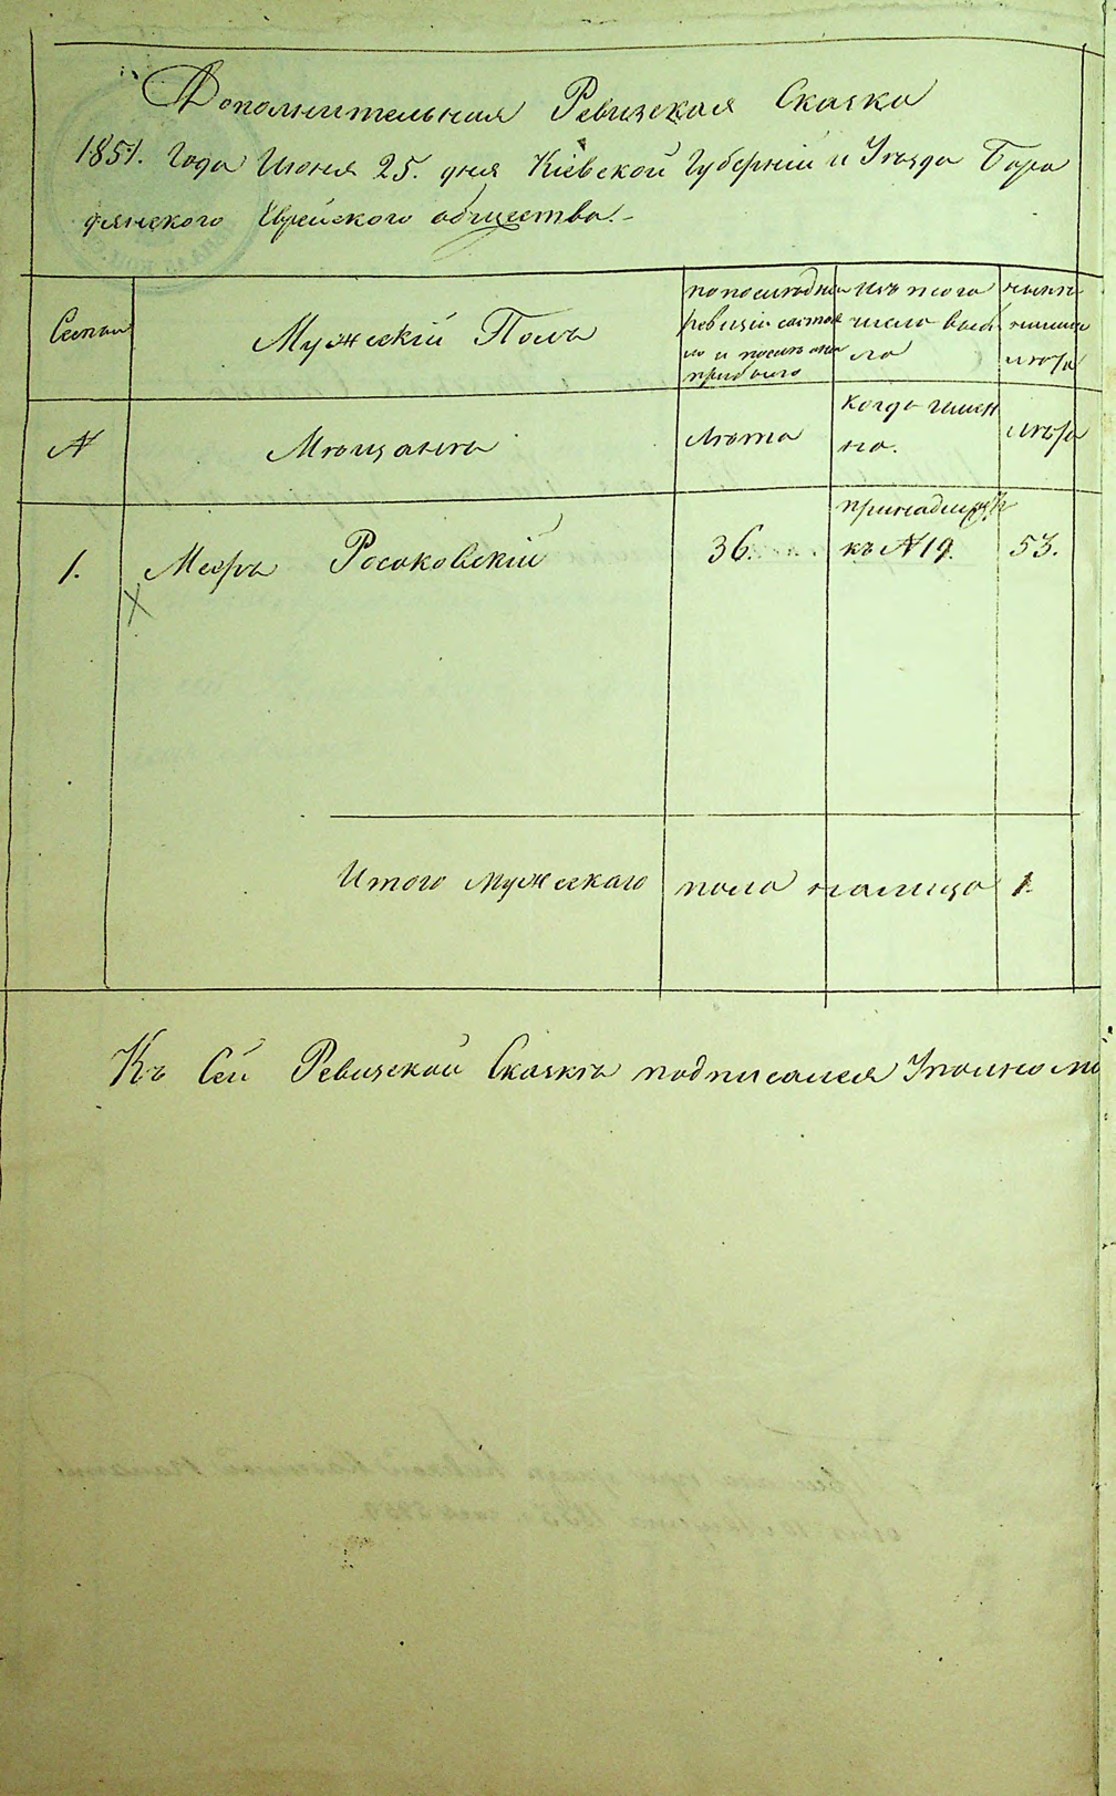 Дополнительная Ревизская Сказка
1851. Года Июня 25. дня Кіевской Губерніи и Уѣзда Боро
дянского Еврейского общества.-
Семьи
Мужескій Полъ
по последней
ревизіи состоя
ло и после оной
прибыло
изъ того
числа выбы
ло
ныне
на лицо
№
Мѣщанѣ
Лѣта
когда имен
но.
лѣта
1.
Мееръ Росоковскій
36.
принадлежитъ
къ №19.
53.
Итого мужескаго пола налицо 1.
Къ Сей Ревизской Сказкѣ подписался Уполномо